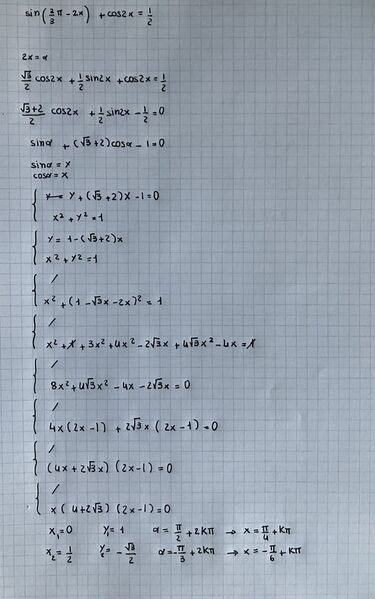 sin(2/3 π - 2x) + cos2x = 1/2
2x = α
√3/2 cos2x + 1/2 sin2x + cos2x = 1/2
√3+2/2 cos2x + 1/2 sin2x - 1/2 = 0
sinα + (√3+2)cosα - 1 = 0
sinα = Y
cosα = X
Y + (√3+2)X - 1 = 0
x² + Y² = 1
Y = 1 - (√3+2)x
x² + Y² = 1
/
x² + (1 - √3x - 2x)² = 1
/
x² + 1 + 3x² + 4x² - 2√3x + 4√3x² - 4x = 1
/
8x² + 4√3x² - 4x - 2√3x = 0
/
4x(2x-1) + 2√3x(2x-1) = 0
/
(4x + 2√3x)(2x-1) = 0
/
x(4+2√3)(2x-1) = 0
x₁ = 0 Y₁ = 1 α = π/2 + 2Kπ → x = π/4 + Kπ
x₂ = 1/2 Y₂ = -√3/2 α = -π/3 + 2Kπ → x = -π/6 + Kπ